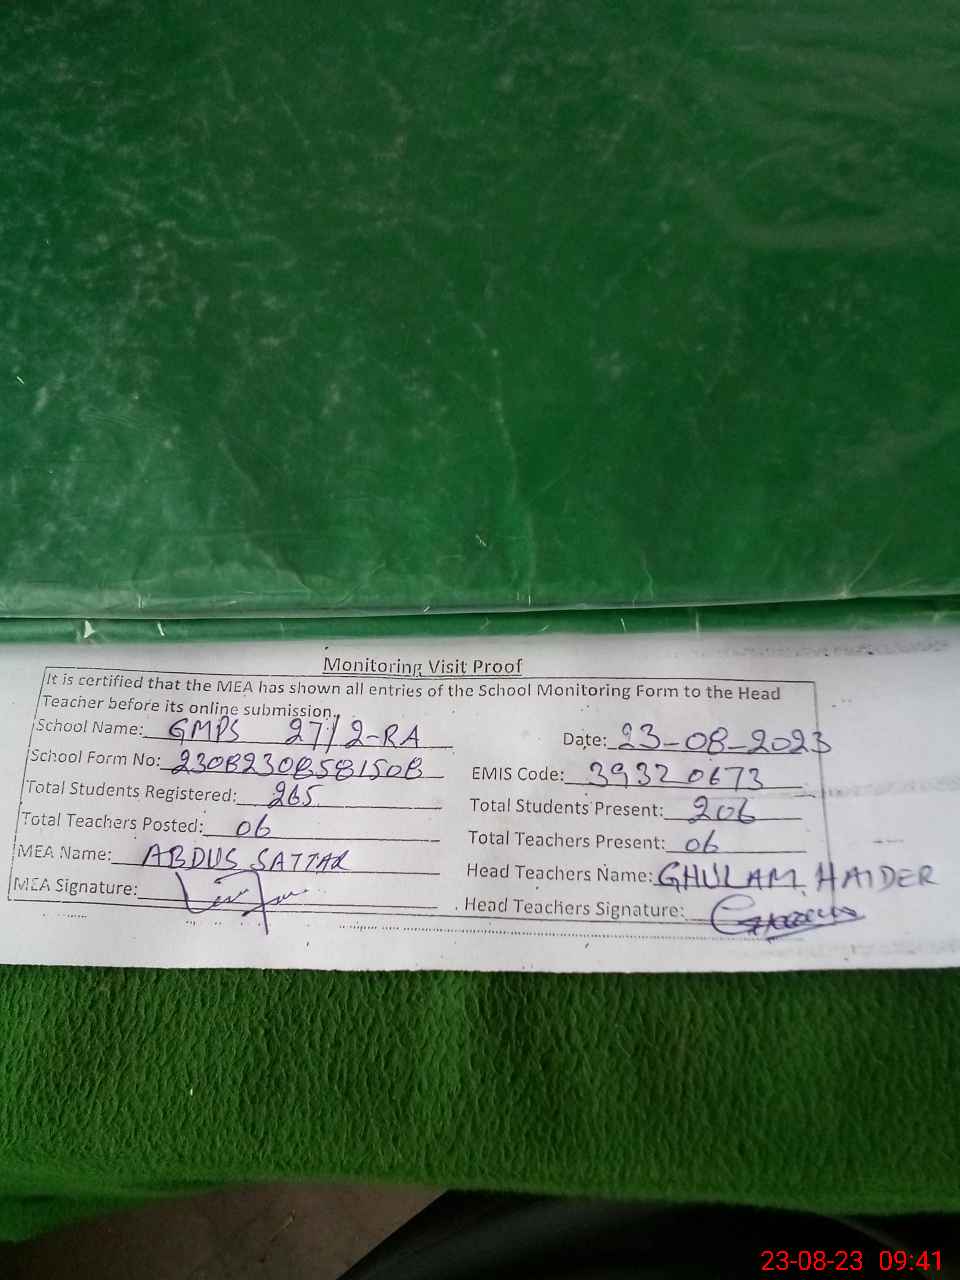 Monitoring Visit Proof
It is certified that the MEA has shown all entries of the School Monitoring Form to the Head
Teacher before its online submission.
School Name: GMPS 27/2-RA Date: 23-08-2023
School Form No: 23082308581508 EMIS Code: 39320673
Total Students Registered: 265 Total Students Present: 206
Total Teachers Posted: 06 Total Teachers Present: 06
MEA Name: ABDUS SATTAR Head Teachers Name: GHULAM HAIDER
MEA Signature: Head Teachers Signature:
23-08-23 09:41